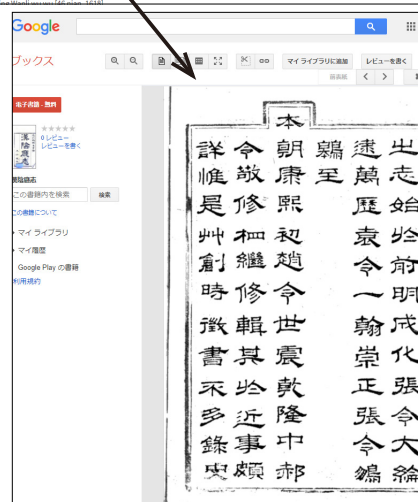 [46 nian, 1618]
Google
ブックス
マイ ライブラリに追加
レビューを書く
前表紙
電子書籍 - 無料
0 レビュー
レビューを書く
漢陰廳志
この書籍内を検索
検索
この書籍について
マイ ライブラリ
マイ履歴
Google Play の書籍
利用規約
出志始於前明成化張令大綸
逮萬歷袁令一翰崇正張令鵷
至
本朝康熙初趙令世震乾隆中郝
令敬修相繼修輯其於近事頗
詳惟是艸創時徵書不多錄史